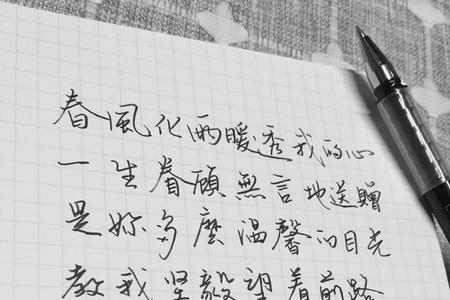 春風化雨暖透我的心
一生眷顧無言地送贈
是妳多麼温馨的目光
教我坚毅望着前路